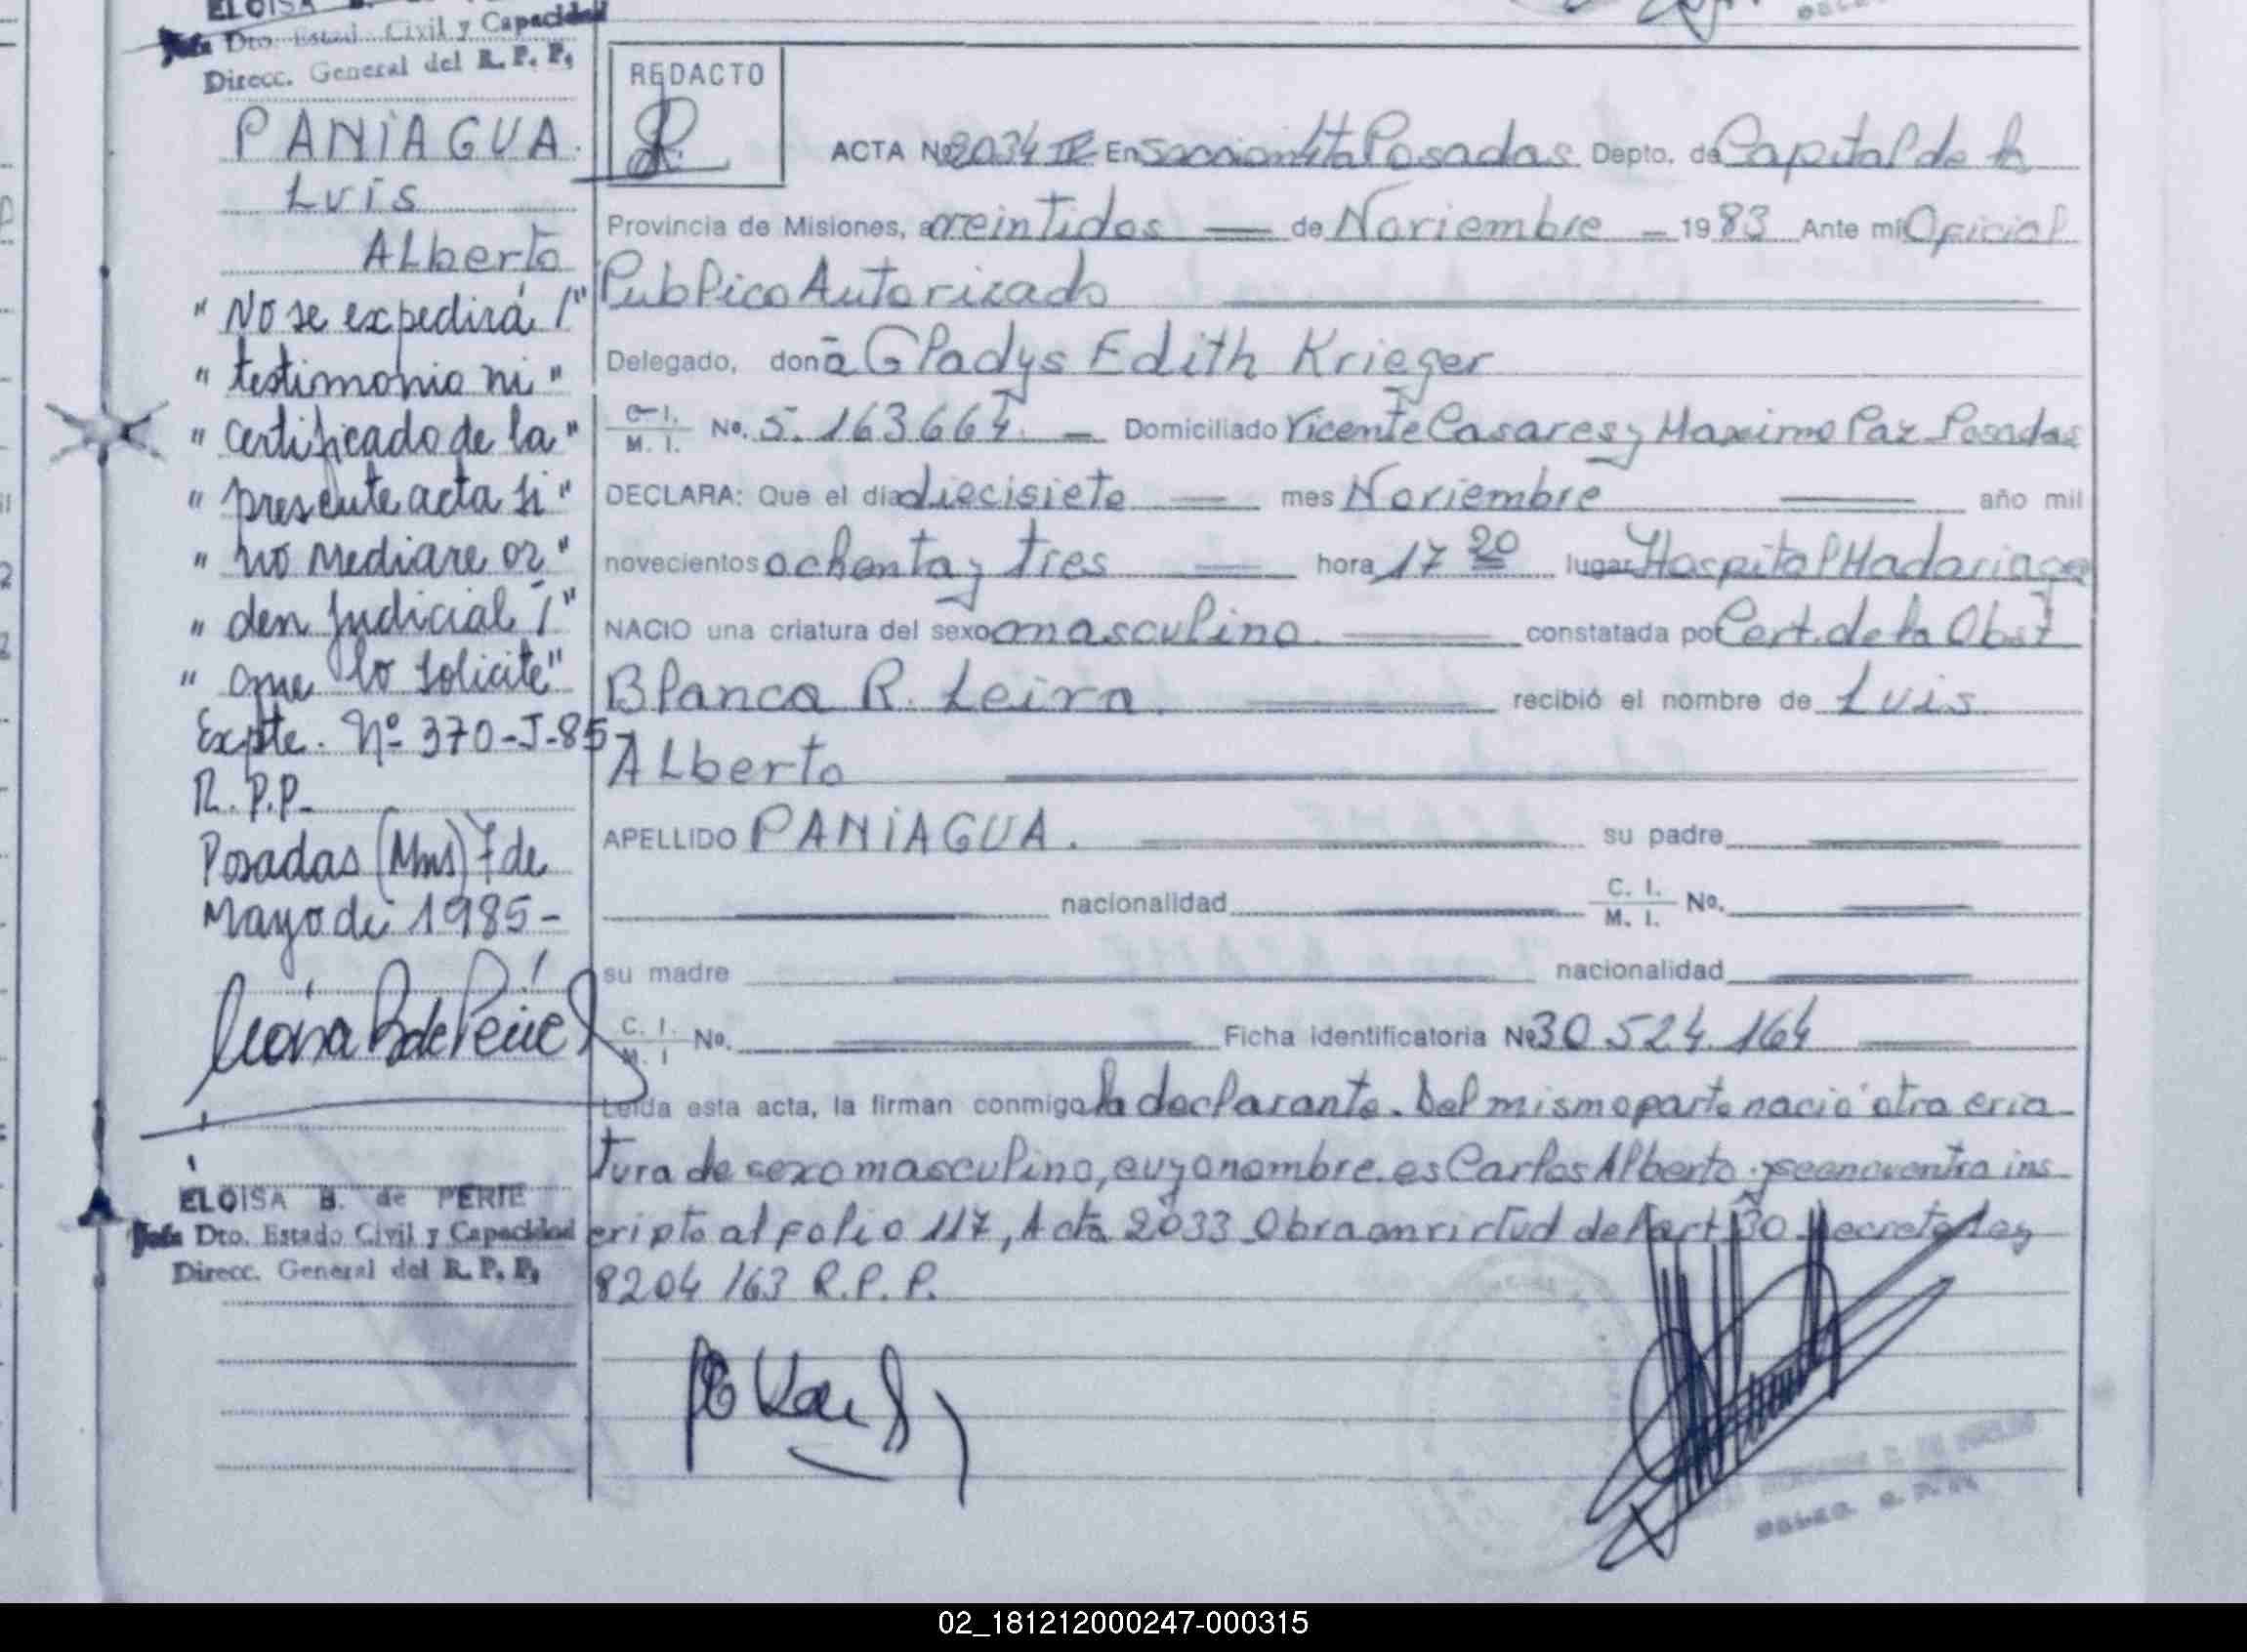 Jefa Dto. Estado Civil y Capacidad
Direcc. General del R. P. P.
PANIAGUA.
Luis
ALberto
"No se expedirá /"
"testimonio ni"
"certificado de la"
"presente acta si"
"no mediare or"
"den judicial /"
"que lo solicite"
Expte. Nº 370-J-85
R.P.P.
Posadas (Mns) 7 de
Mayo de 1985-
ELOISA B. de PERIE
Jefa Dto. Estado Civil y Capacidad
Direcc. General del R. P. P.
REDACTO
ACTA Nº 2034 En Posadas Depto. de Capital de la
Provincia de Misiones, a veintidos de Noviembre 1983 Ante mi Oficial
Publico Autorizado
Delegado, doña Gladys Edith Krieger
C. I. / M. I. No. 5.163664 Domiciliado Vicente Casares y Maximo Paz Posadas
DECLARA: Que el día diecisiete mes Noviembre año mil
novecientos ochenta y tres hora 17 20 lugar Hospital Madariaga
NACIO una criatura del sexo masculino. constatada por Cert. de la Obst
Blanca R. Leira. recibió el nombre de Luis
ALberto
APELLIDO PANIAGUA. su padre
nacionalidad C. I. / M. I. No.
su madre nacionalidad
C. I. / M. I No. Ficha identificatoria Nº 30 524.164
Leída esta acta, la firman conmigo la declarante. Del mismo parto nació otra cria
tura de sexo masculino, cuyo nombre es Carlos Alberto y se encuentra ins
cripto al folio 117, Acta 2033 Obra en virtud del art 30 Decreto Ley
8204/63 R.P.P.
02_181212000247-000315